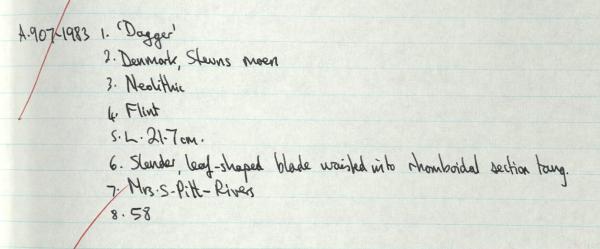 A.907-1983 1. 'Dagger'
2. Denmark, Stevns moen
3. Neolithic
4. Flint
5. L. 21.7cm.
6. Slender, leaf-shaped blade waisted into rhomboidal section tang.
7. Mrs. S. Pitt-Rivers
8. 58